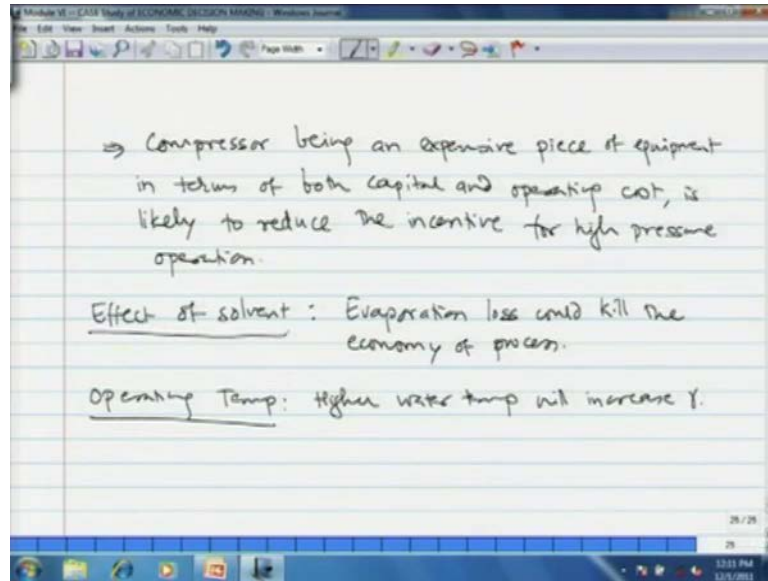 Module VI -- CASE Study of ECONOMIC DECISION MAKING - Windows Journal
File Edit View Insert Actions Tools Help
Page Width
⇒ Compressor being an expensive piece of equipment
in terms of both capital and operating cost, is
likely to reduce the incentive for high pressure
operation.
Effect of solvent : Evaporation loss could kill the
economy of process.
Operating Temp: Higher water temp will increase γ.
25 / 25
25
12:11 PM
12/1/2011